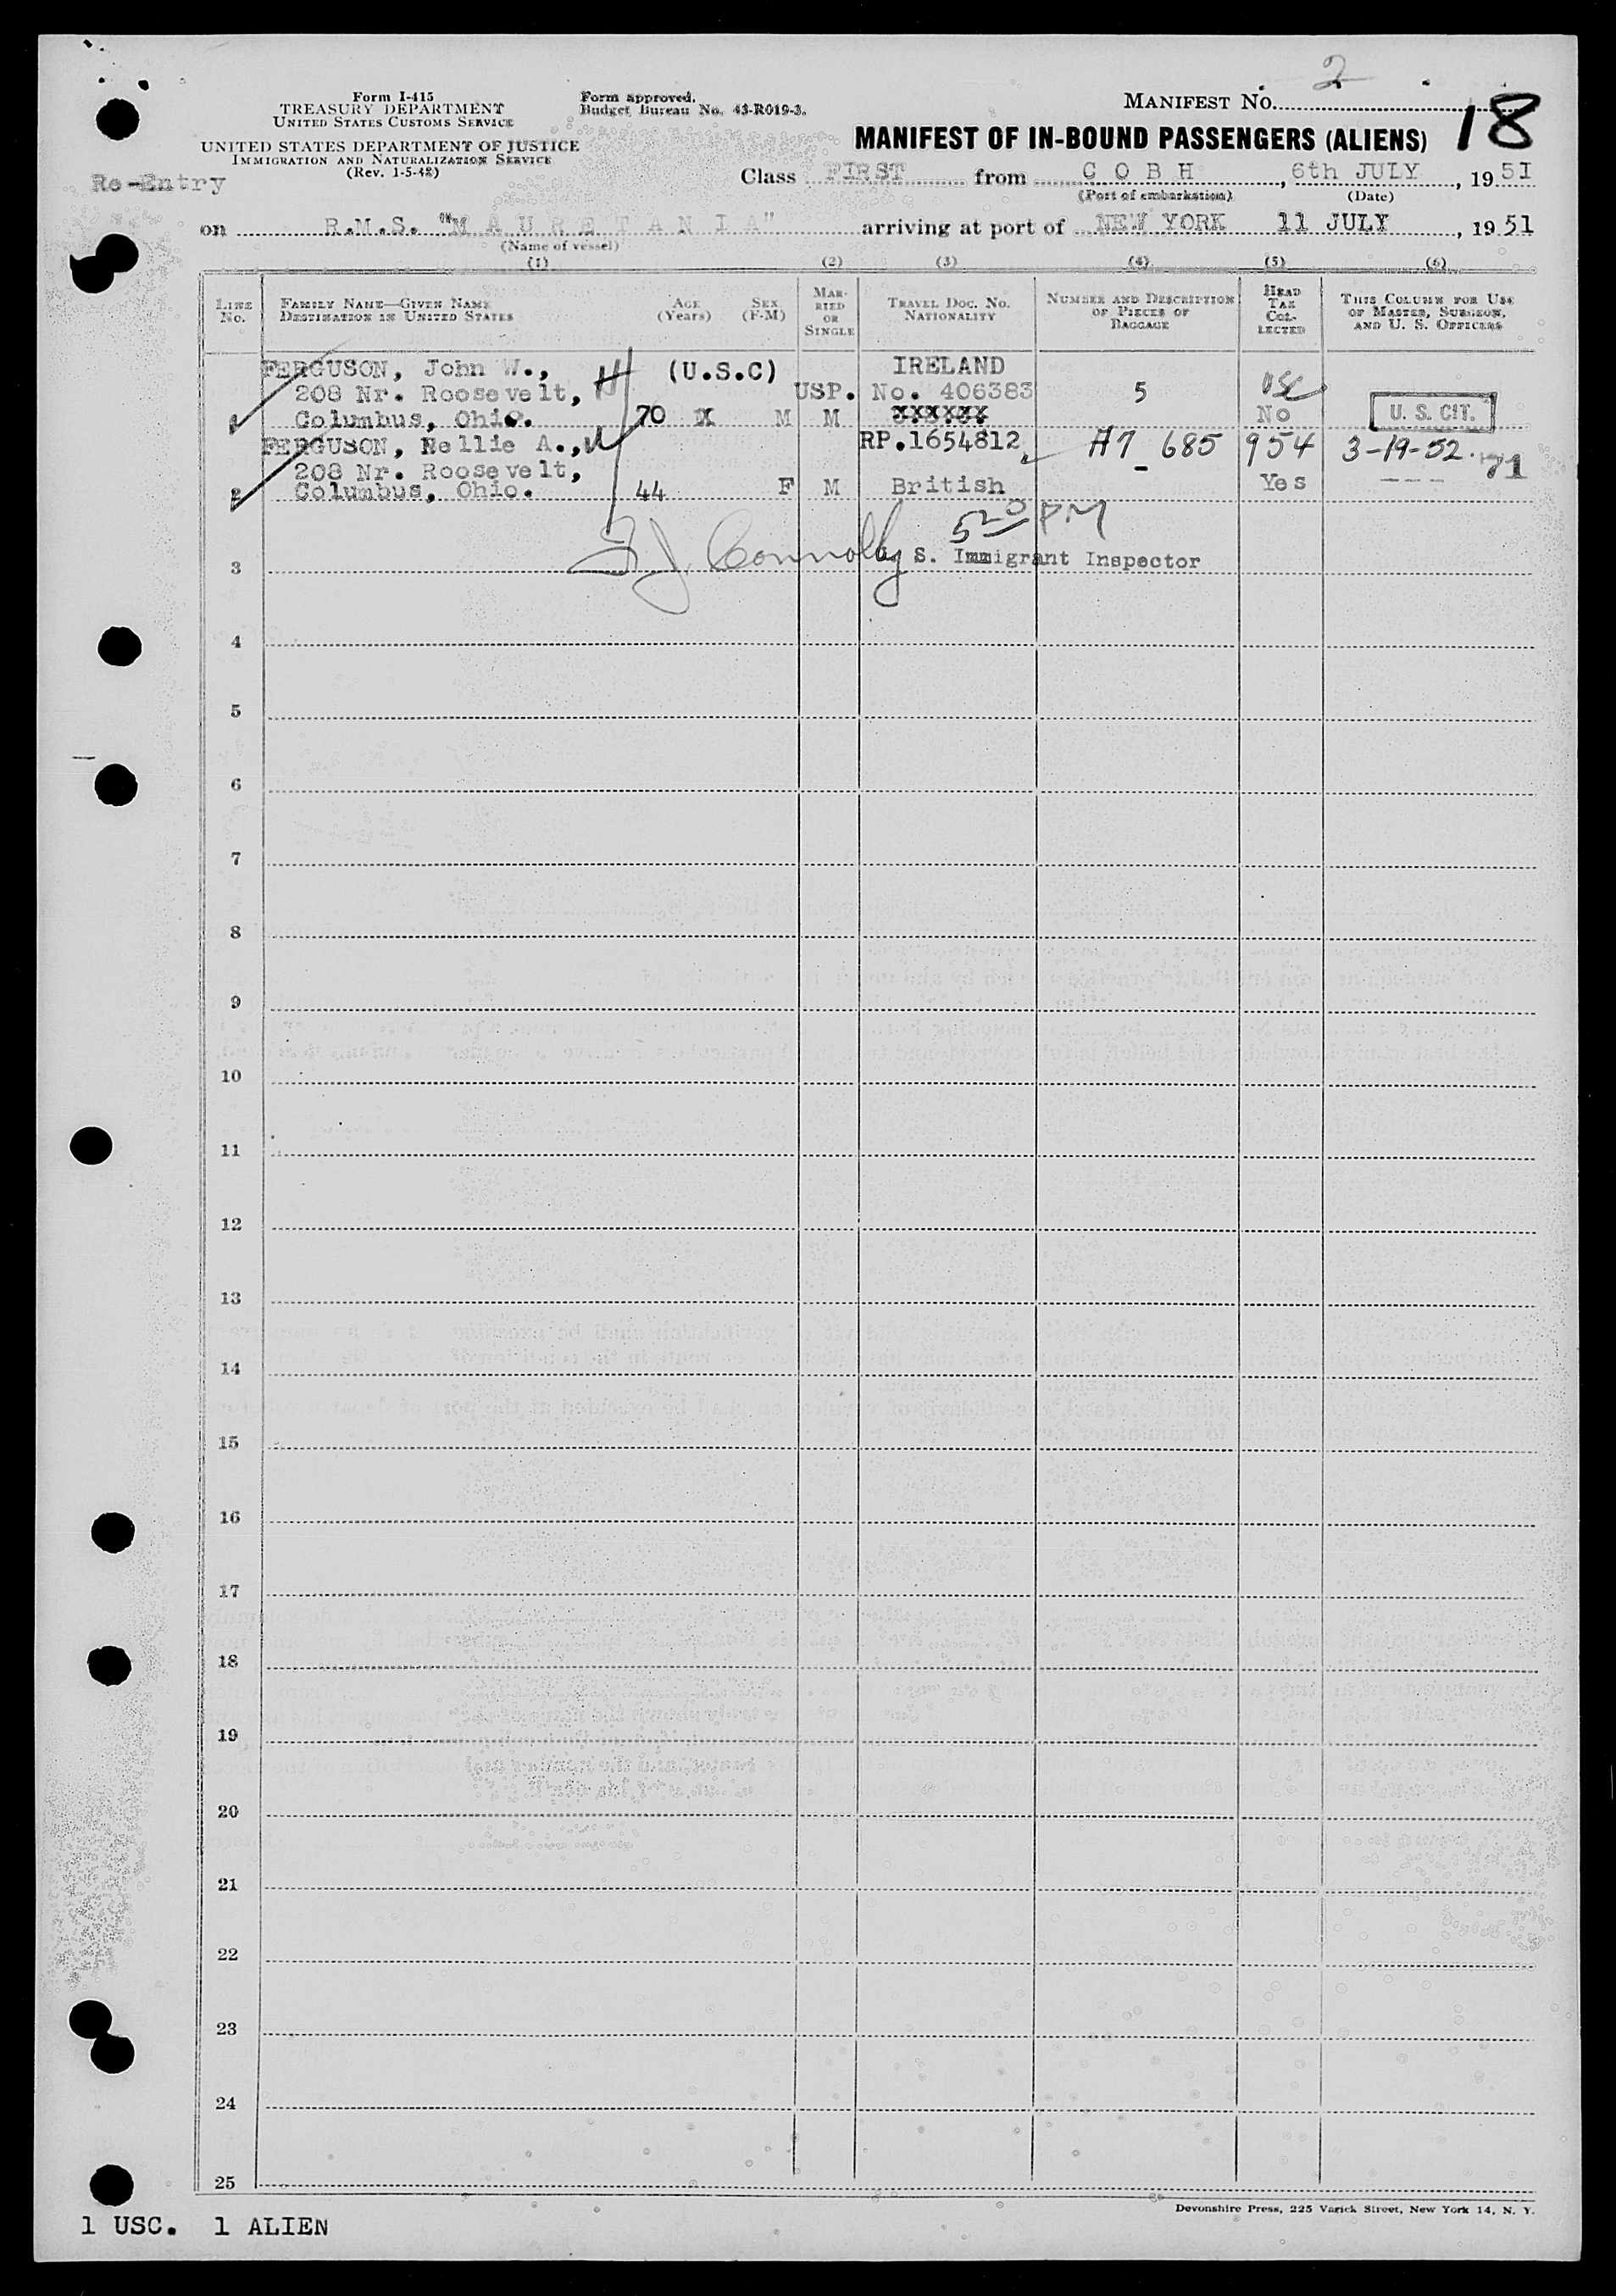 2
Form I-415
TREASURY DEPARTMENT
UNITED STATES CUSTOMS SERVICE
UNITED STATES DEPARTMENT OF JUSTICE
IMMIGRATION AND NATURALIZATION SERVICE
(Rev. 1-5-48)
Form approved.
Budget Bureau No. 43-R019-3.
MANIFEST NO.
18
MANIFEST OF IN-BOUND PASSENGERS (ALIENS)
Re-Entry
Class FIRST from C O B H, 6th JULY, 1951
(Port of embarkation) (Date)
on R.M.S. "M A U R E T A N I A" arriving at port of NEW YORK 11 JULY, 1951
(Name of vessel)
(1) (2) (3) (4) (5) (6)
LINE NO.
FAMILY NAME—GIVEN NAME
DESTINATION IN UNITED STATES
AGE (Years)
SEX (F-M)
MARRIED OR SINGLE
TRAVEL DOC. NO.
NATIONALITY
NUMBER AND DESCRIPTION OF PIECES OF BAGGAGE
HEAD TAX COLLECTED
THIS COLUMN FOR USE OF MASTER, SURGEON, AND U. S. OFFICERS
FERGUSON, John W., (U.S.C) IRELAND
208 Nr. Roosevelt, USP. No. 406383 5 USC
1 Columbus, Ohio. 70 X M M XXXXXX No U. S. CIT.
FERGUSON, Nellie A., RP.1654812 A7 685 954 3-19-52. 71
208 Nr. Roosevelt,
2 Columbus, Ohio. 44 F M British Yes ---
5 20 PM
F J Connolly U. S. Immigrant Inspector
3
4
5
6
7
8
9
10
11
12
13
14
15
16
17
18
19
20
21
22
23
24
25
Devonshire Press, 225 Varick Street, New York 14, N. Y.
1 USC. 1 ALIEN